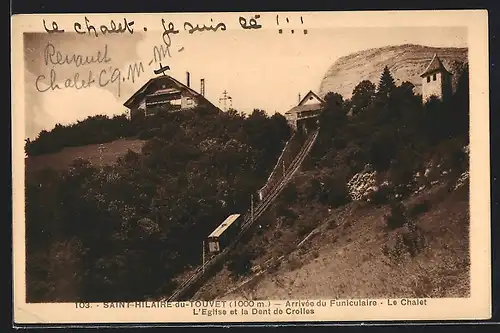 le chalet. Je suis là !!!
Renault
Chalet C'9 M-M-
103. - SAINT-HILAIRE-du-TOUVET (1000 m.) - Arrivée du Funiculaire - Le Chalet
L'Eglise et la Dent de Crolles